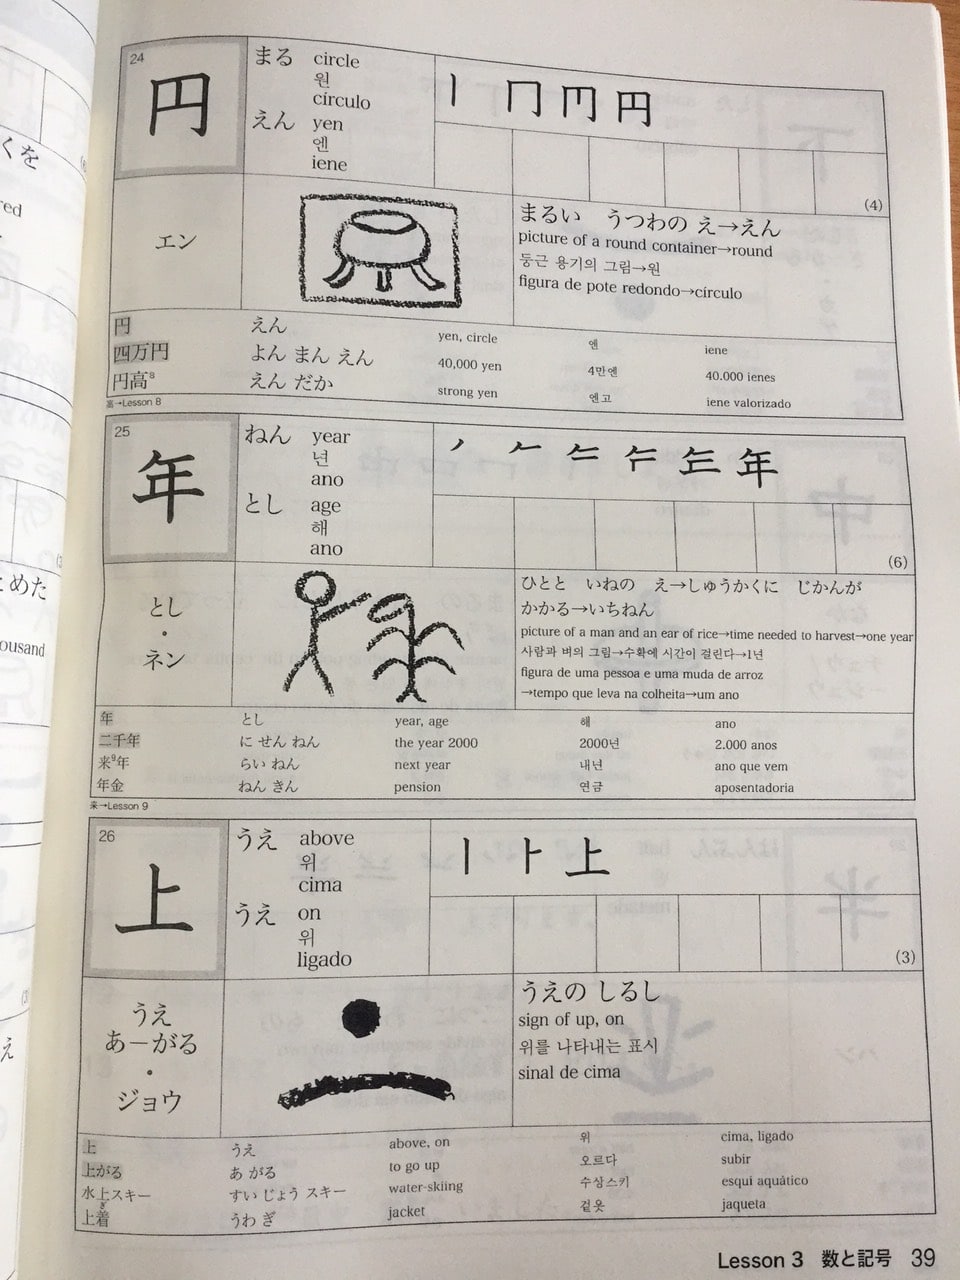 24
円
まる circle
원
círculo
えん yen
엔
iene
丨 冂 冂 円
(4)
エン
まるい うつわの え→えん
picture of a round container→round
둥근 용기의 그림→원
figura de pote redondo→círculo
円 えん yen, circle 엔 iene
四万円 よん まん えん 40,000 yen 4만엔 40.000 ienes
円高⁸ えん だか strong yen 엔고 iene valorizado
高→Lesson 8
25
年
ねん year
년
ano
とし age
해
ano
年
(6)
とし
・
ネン
ひとと いねの え→しゅうかくに じかんが
かかる→いちねん
picture of a man and an ear of rice→time needed to harvest→one year
사람과 벼의 그림→수확에 시간이 걸린다→1년
figura de uma pessoa e uma muda de arroz
→tempo que leva na colheita→um ano
年 とし year, age 해 ano
二千年 に せん ねん the year 2000 2000년 2.000 anos
来⁹年 らい ねん next year 내년 ano que vem
年金 ねん きん pension 연금 aposentadoria
来→Lesson 9
26
上
うえ above
위
cima
うえ on
위
ligado
丨 ⺊ 上
(3)
うえ
あーがる
・
ジョウ
うえの しるし
sign of up, on
위를 나타내는 표시
sinal de cima
上 うえ above, on 위 cima, ligado
上がる あ がる to go up 오르다 subir
水上スキー すい じょう スキー water-skiing 수상스키 esqui aquático
上着 うわ ぎ jacket 겉옷 jaqueta
ぎ
Lesson 3 数と記号 39
くを
red
とめた
ousand
え